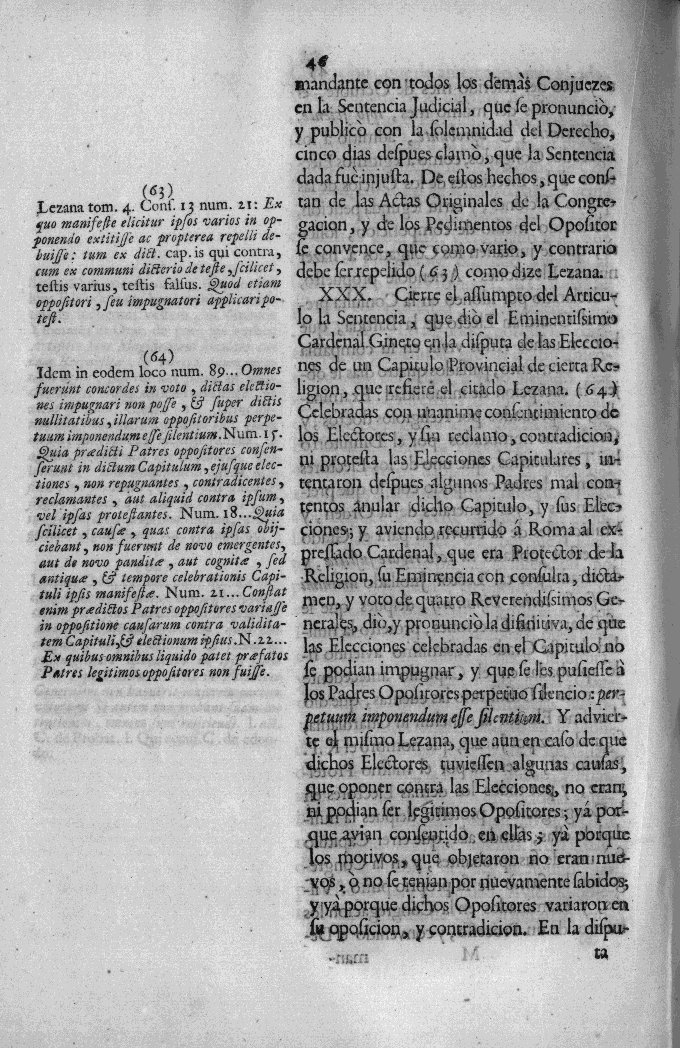 46
mandante con todos los demàs Conjuezes
en la Sentencia Judicial, que se pronunciò,
y publicò con la solemnidad del Derecho,
cinco dias despues clamò, que la Sentencia
dada fue injusta. De estos hechos, que cons-
tan de las Actas Originales de la Congre-
gacion, y de los Pedimentos del Opositor
se convence, que como vario, y contrario
debe ser repelido (63) como dize Lezana.
XXX. Cierre el assumpto del Articu-
lo la Sentencia, que diò el Eminentissimo
Cardenal Gineto en la disputa de las Eleccio-
nes de un Capitulo Provincial de cierta Re-
ligion, que refiere el citado Lezana. (64)
Celebradas con unanime consentimiento de
los Electores, y sin reclamo, contradicion,
ni protesta las Elecciones Capitulares, in-
tentaron despues algunos Padres mal con-
tentos anular dicho Capitulo, y sus Elec-
ciones; y aviendo recurrido á Roma al ex-
pressado Cardenal, que era Protector de la
Religion, su Eminencia con consulta, dicta-
men, y voto de quatro Reverendissimos Ge-
nerales, dio, y pronunciò la difinitiva, de que
las Elecciones celebradas en el Capitulo no
se podian impugnar, y que se les pusiesse à
los Padres Opositores perpetuo silencio: per-
petuum imponendum esse silentium. Y advier-
te el mismo Lezana, que aun en caso de que
dichos Electores tuviessen algunas causas,
que oponer contra las Elecciones, no eran,
ni podian ser legitimos Opositores; yá por-
que avian consentido en ellas; yà porque
los motivos, que objetaron no eran nue-
vos, ò no se tenian por nuevamente sabidos;
y yà porque dichos Opositores variaron en
su oposicion, y contradicion. En la dispu-
ta
(63)
Lezana tom. 4. Cons. 13 num. 21: Ex
quo manifeste elicitur ipsos varios in op-
ponendo extitisse ac propterea repelli de-
buisse: tum ex dict. cap. is qui contra,
cum ex communi dicterio de teste, scilicet,
testis varius, testis falsus. Quod etiam
oppositori, seu impugnatori applicari po-
test.
(64)
Idem in eodem loco num. 89... Omnes
fuerunt concordes in voto, dictas electio-
nes impugnari non posse, & super dictis
nullitatibus, illarum oppositoribus perpe-
tuum imponendum esse silentium. Num. 15.
Quia prædicti Patres oppositores consen-
serunt in dictum Capitulum, ejusque elec-
tiones, non repugnantes, contradicentes,
reclamantes, aut aliquid contra ipsum,
vel ipsas protestantes. Num. 18... Quia
scilicet, causæ, quas contra ipsas obij-
ciebant, non fuerunt de novo emergentes,
aut de novo panditæ, aut cognitæ, sed
antiquæ, & tempore celebrationis Capi-
tuli ipsis manifestæ. Num. 21... Constat
enim prædictos Patres oppositores variasse
in oppositione causarum contra validita-
tem Capituli, & electionum ipsius. N.22...
Ex quibus omnibus liquido patet præfatos
Patres legitimos oppositores non fuisse.